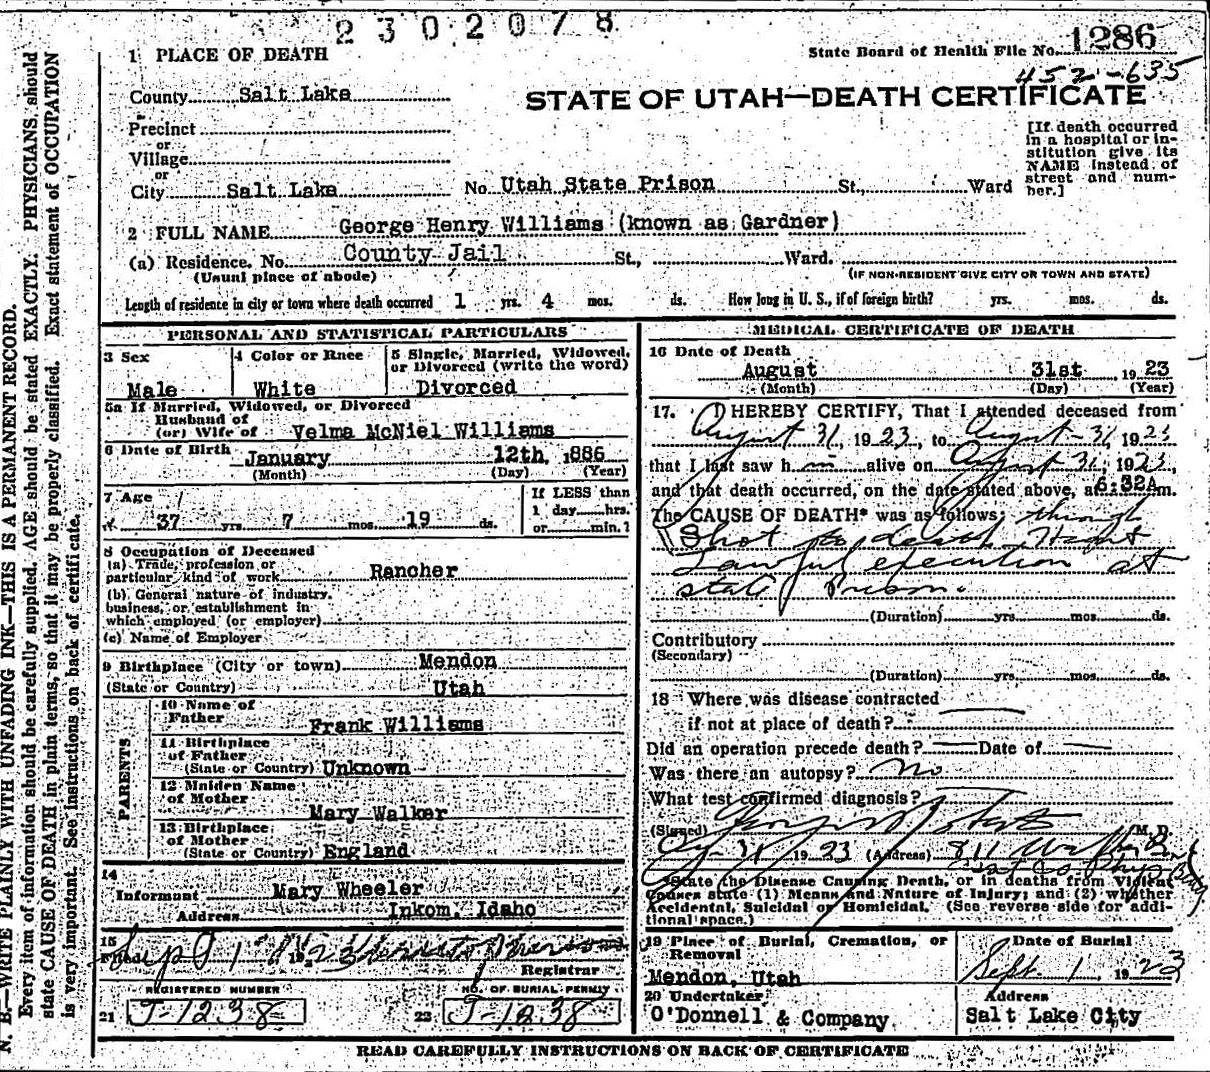 2302078
State Board of Health File No. 1286
452-635
1 PLACE OF DEATH
County Salt Lake
STATE OF UTAH—DEATH CERTIFICATE
Precinct
or
Village
or
City Salt Lake No. Utah State Prison St., Ward
[If death occurred in a hospital or institution give its NAME instead of street and number.]
2 FULL NAME George Henry Williams (known as Gardner)
(a) Residence. No. County Jail St., Ward.
(Usual place of abode) (IF NON-RESIDENT GIVE CITY OR TOWN AND STATE)
Length of residence in city or town where death occurred 1 yrs. 4 mos. ds. How long in U. S., if of foreign birth? yrs. mos. ds.
PERSONAL AND STATISTICAL PARTICULARS
3 Sex
Male
4 Color or Race
White
5 Single, Married, Widowed, or Divorced (write the word)
Divorced
5a If Married, Widowed, or Divorced
Husband of
(or) Wife of Velma McNiel Williams
6 Date of Birth January 12th, 1886
(Month) (Day) (Year)
7 Age
37 yrs. 7 mos. 19 ds.
If LESS than
1 day hrs.
or min.?
8 Occupation of Deceased
(a) Trade, profession or
particular kind of work Rancher
(b) General nature of industry,
business, or establishment in
which employed (or employer)
(c) Name of Employer
9 Birthplace (City or town) Mendon
(State or Country) Utah
PARENTS
10 Name of
Father Frank Williams
11 Birthplace
of Father
(State or Country) Unknown
12 Maiden Name
of Mother
Mary Walker
13 Birthplace
of Mother
(State or Country) England
14
Informant Mary Wheeler
Address Inkom, Idaho
15
Filed Sep 1 1923
Registrar
REGISTERED NUMBER NO. OF BURIAL PERMIT
21 J-1238 22 J-1238
MEDICAL CERTIFICATE OF DEATH
16 Date of Death
August 31st 1923
(Month) (Day) (Year)
17. I HEREBY CERTIFY, That I attended deceased from
August 31, 1923, to August 31, 1923
that I last saw h im alive on August 31, 1923,
and that death occurred, on the date stated above, at 6:32A m.
The CAUSE OF DEATH* was as follows:
Shot to death through Heart
Lawful execution at
State Prison.
(Duration) yrs. mos. ds.
Contributory
(Secondary)
(Duration) yrs. mos. ds.
18 Where was disease contracted
if not at place of death?
Did an operation precede death? Date of
Was there an autopsy? No
What test confirmed diagnosis?
(Signed) M. D.
31 1923 (Address) 811
*State the Disease Causing Death, or in deaths from Violent
Causes state (1) Means and Nature of Injury; and (2) whether
Accidental, Suicidal or Homicidal. (See reverse side for addi-
tional space.)
19 Place of Burial, Cremation, or
Removal
Mendon, Utah
Date of Burial
Sept 1, 1923
20 Undertaker
O'Donnell & Company
Address
Salt Lake City
READ CAREFULLY INSTRUCTIONS ON BACK OF CERTIFICATE
N. B.—WRITE PLAINLY WITH UNFADING INK—THIS IS A PERMANENT RECORD.
Every item of information should be carefully supplied. AGE should be stated EXACTLY. PHYSICIANS should
state CAUSE OF DEATH in plain terms, so that it may be properly classified. Exact statement of OCCUPATION
is very important. See instructions on back of certificate.